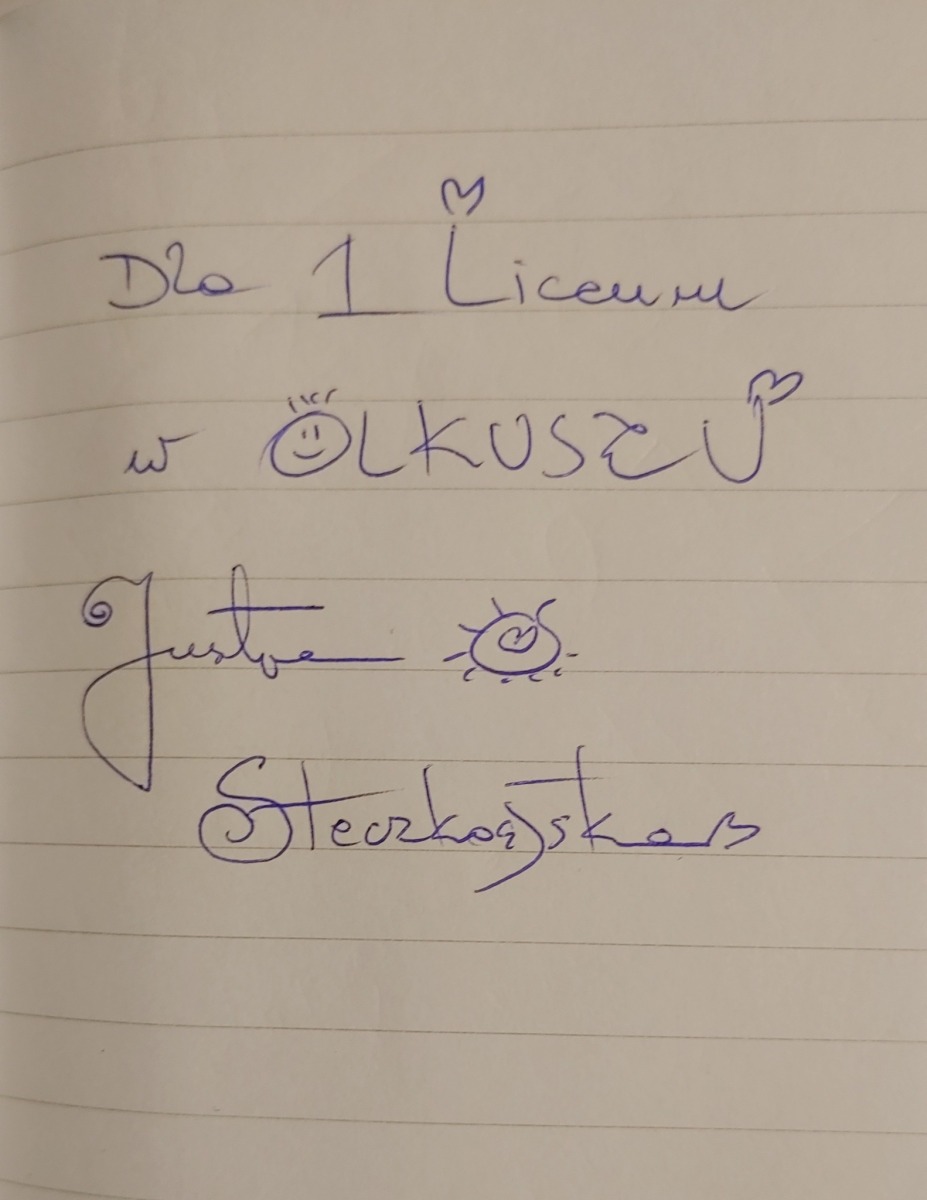 Dla 1 Liceum
w OLKUSZU
Justyna
Steczkowska